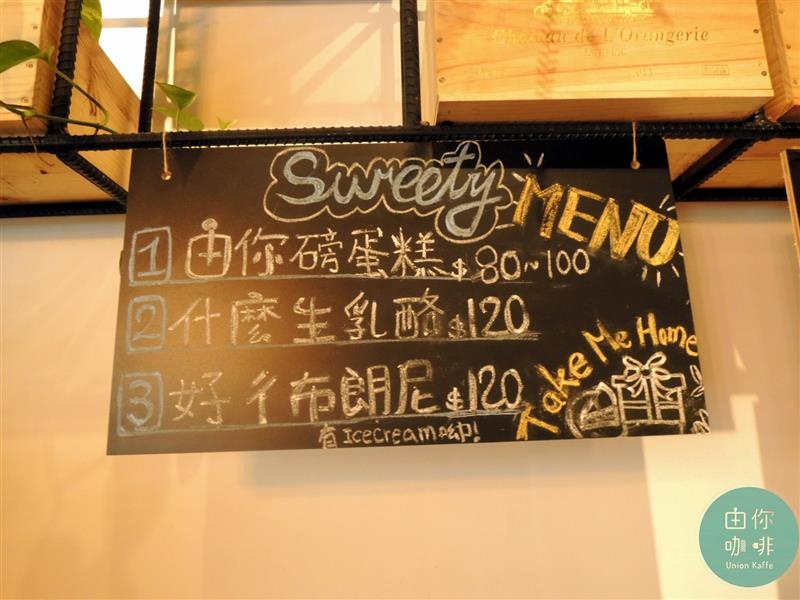 Chateau de L'Orangerie
Sweety MENU
1 由你磅蛋糕 $80~100
2 什麼生乳酪 $120
3 好彳布朗尼 $120
有Icecream呦!
Take Me Home
由你
咖啡
Union Kaffe